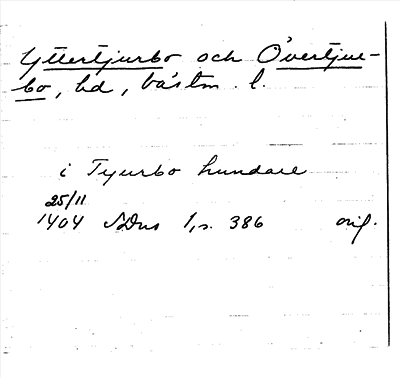 Yttertjurbo och Övertjur-
bo, hd, västm. l.
i Tyurbo hundare
25/11
1404 SDns 1, s. 386 orig.